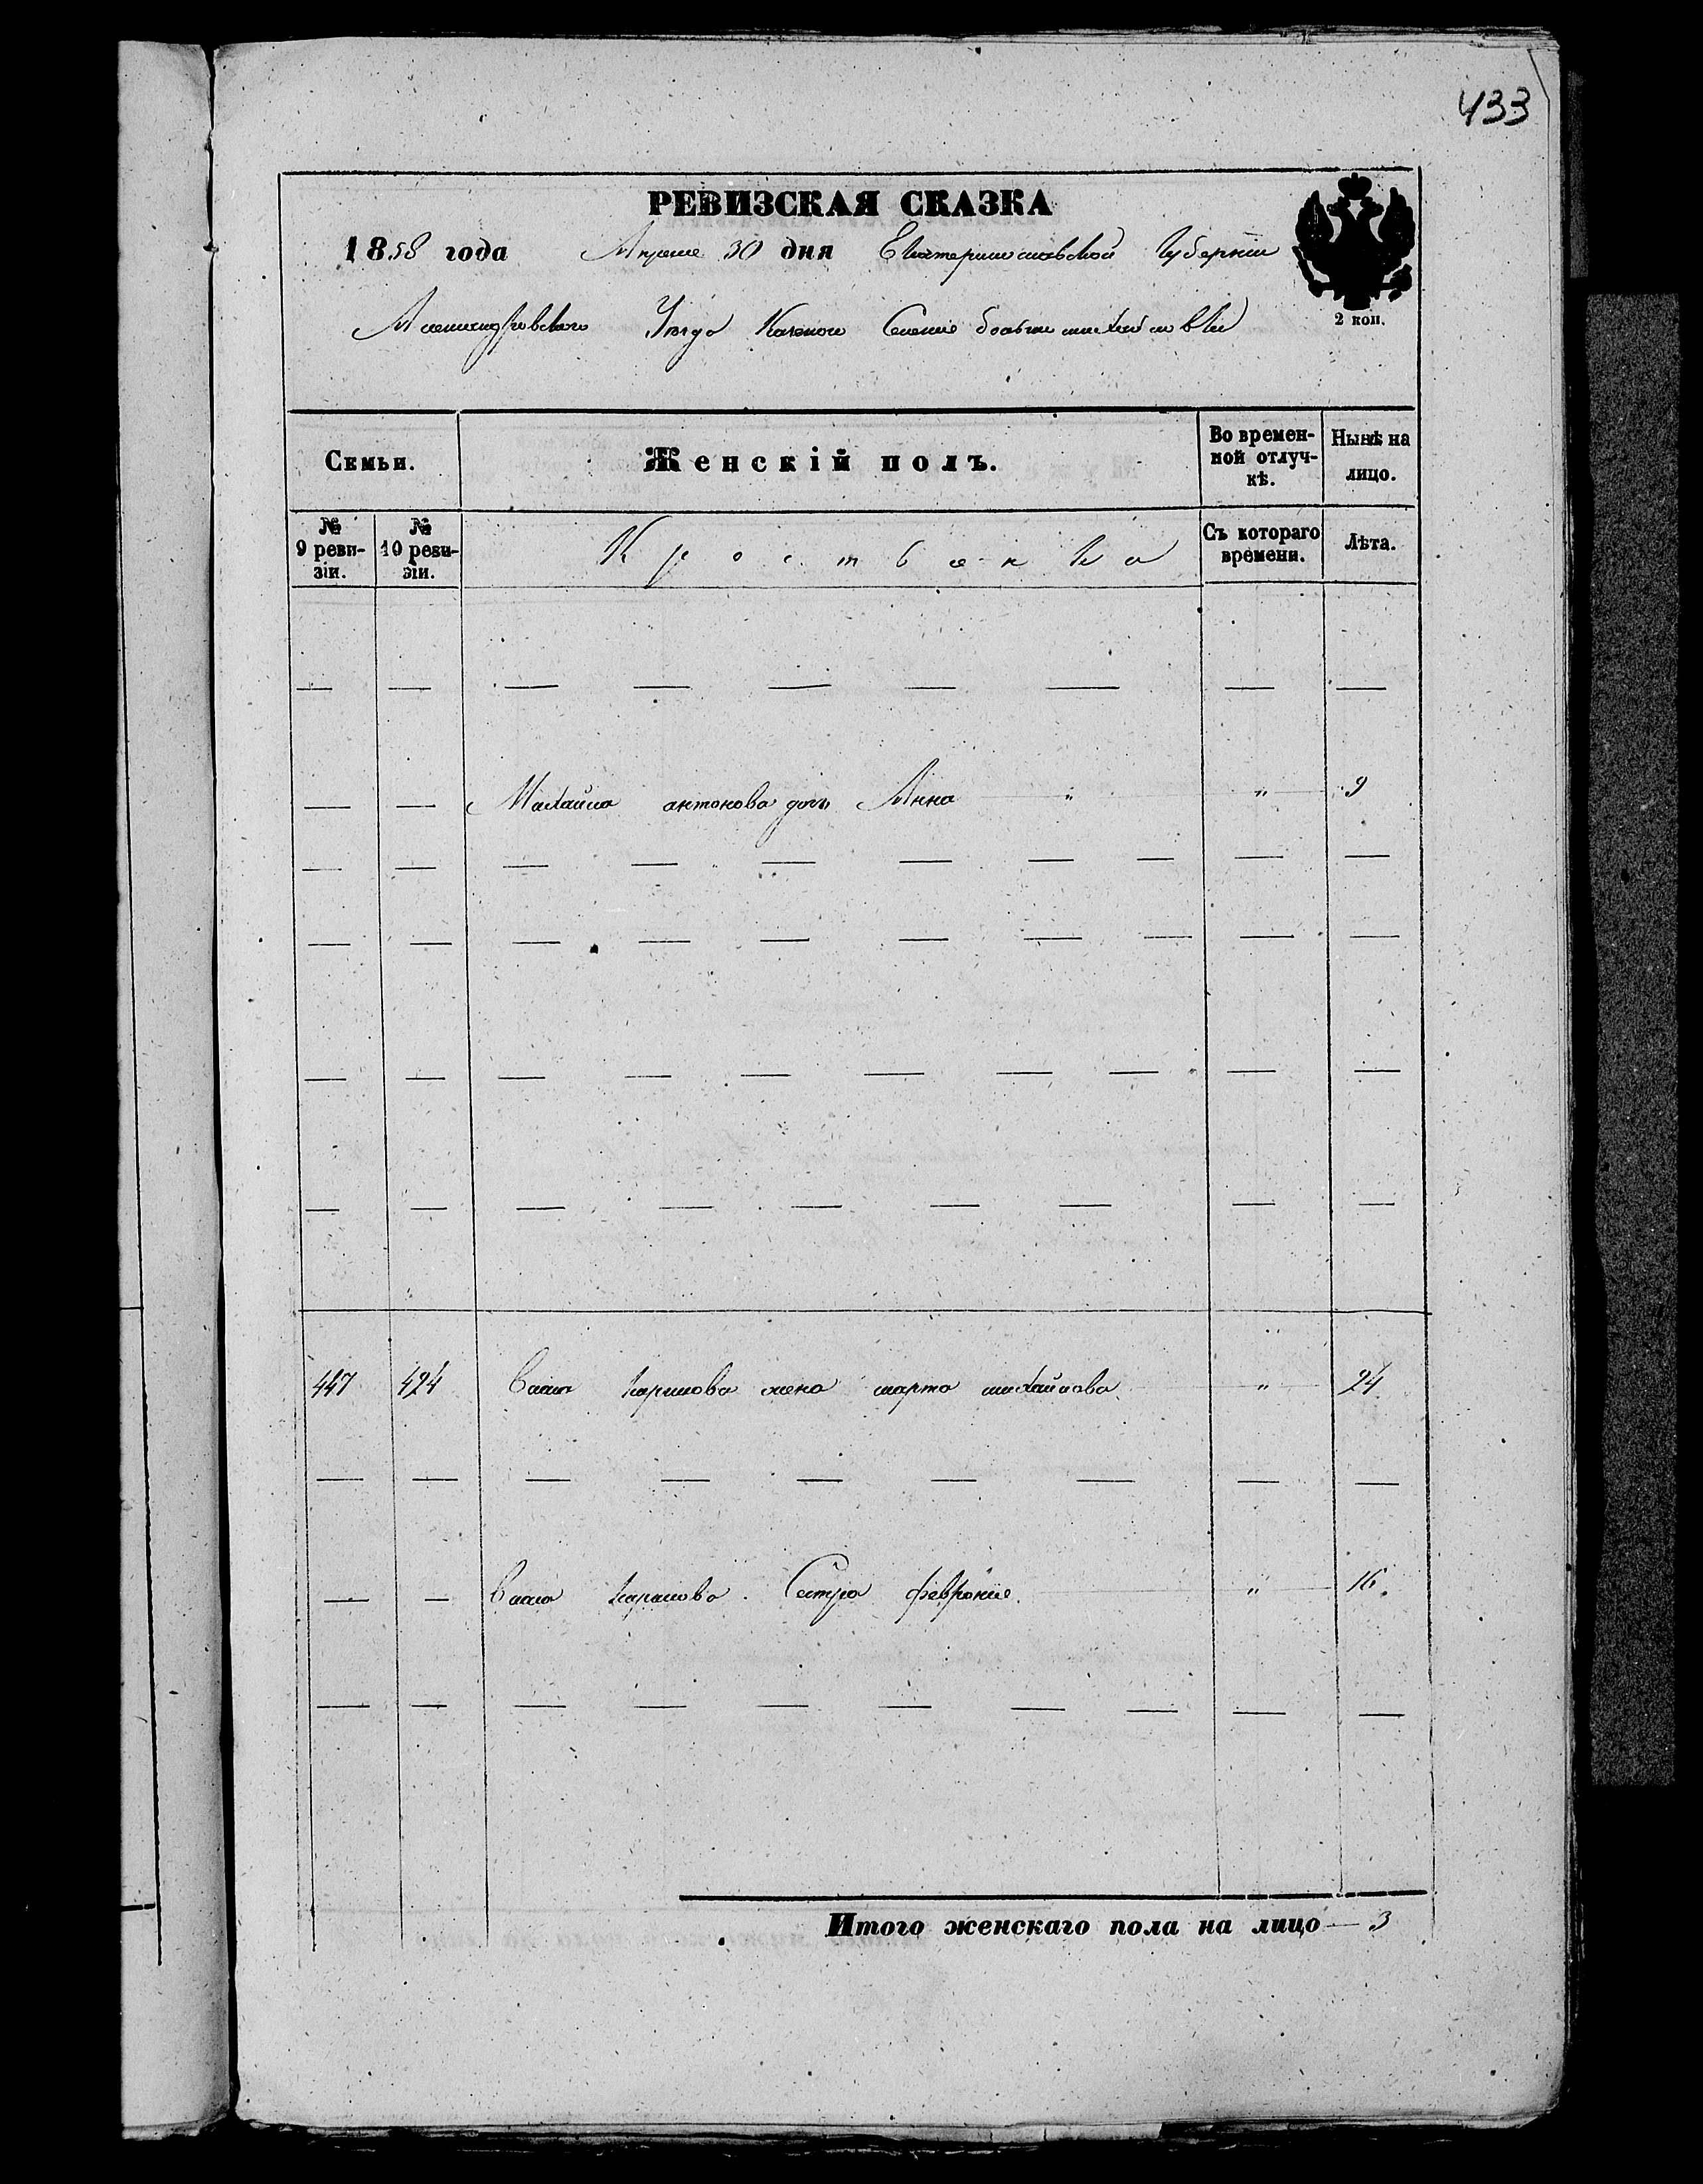 433
РЕВИЗСКАЯ СКАЗКА
1858 года Апреля 30 дня Екатеринославской Губернии
Александровского Уезда Казенного Селения
2 коп.
Семьи. Женскій полъ. Во времен-ной отлуч-кѣ. Нынѣ на лицо.
№ 9 реви-зіи. № 10 реви-зіи. Съ котораго времени. Лѣта.
— — — — — — — — —
— — Михайла антонова дочь Анна " " 9
— — — — — — — — — —
— — — — — — — — — —
— — — — — — — — — —
— — — — — — — — —
447 424 жена марта михайлова " 24
— — — — — — — — —
— — Сестра феврония. " 16.
— — — — — — — — — —
Итого женскаго пола на лицо — 3